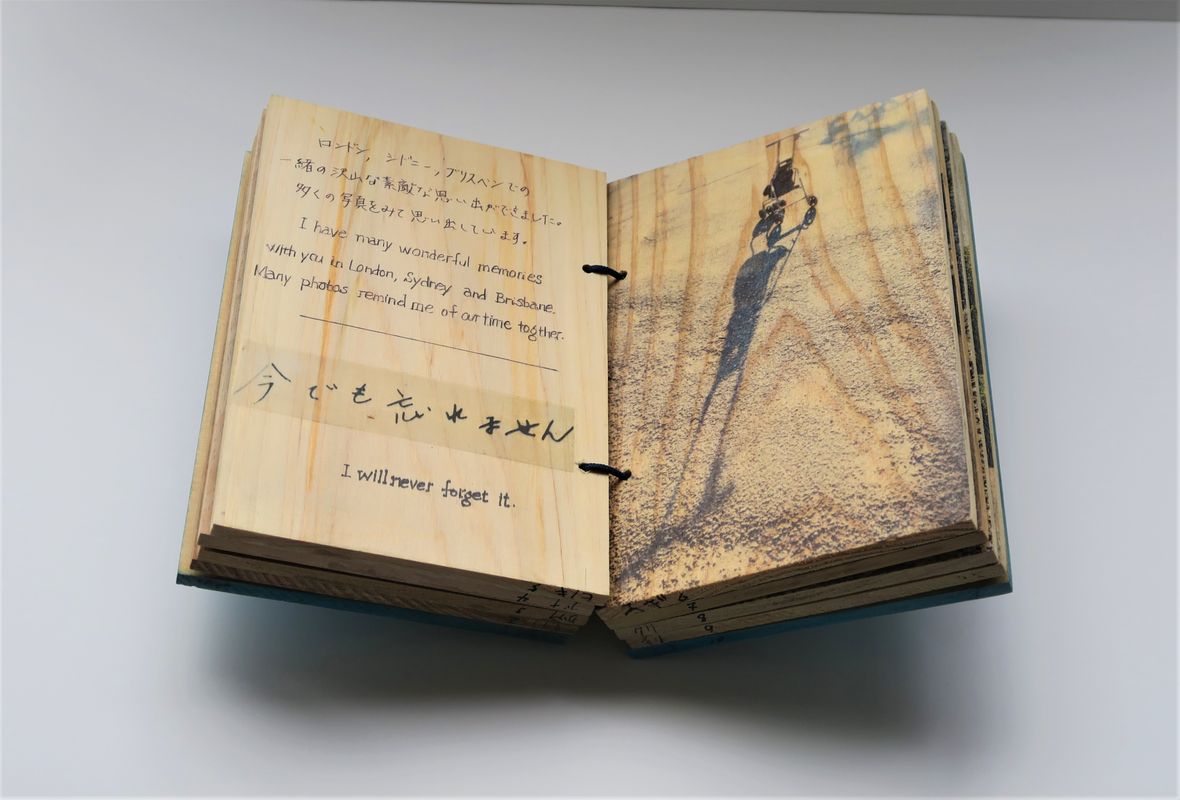 ロンドン, シドニー, ブリスベンでの
一緒の沢山な素敵な思い出ができました。
多くの写真をみて思い出しています。
I have many wonderful memories
with you in London, Sydney and Brisbane.
Many photos remind me of our time togther.
今でも忘れません
I will never forget it.